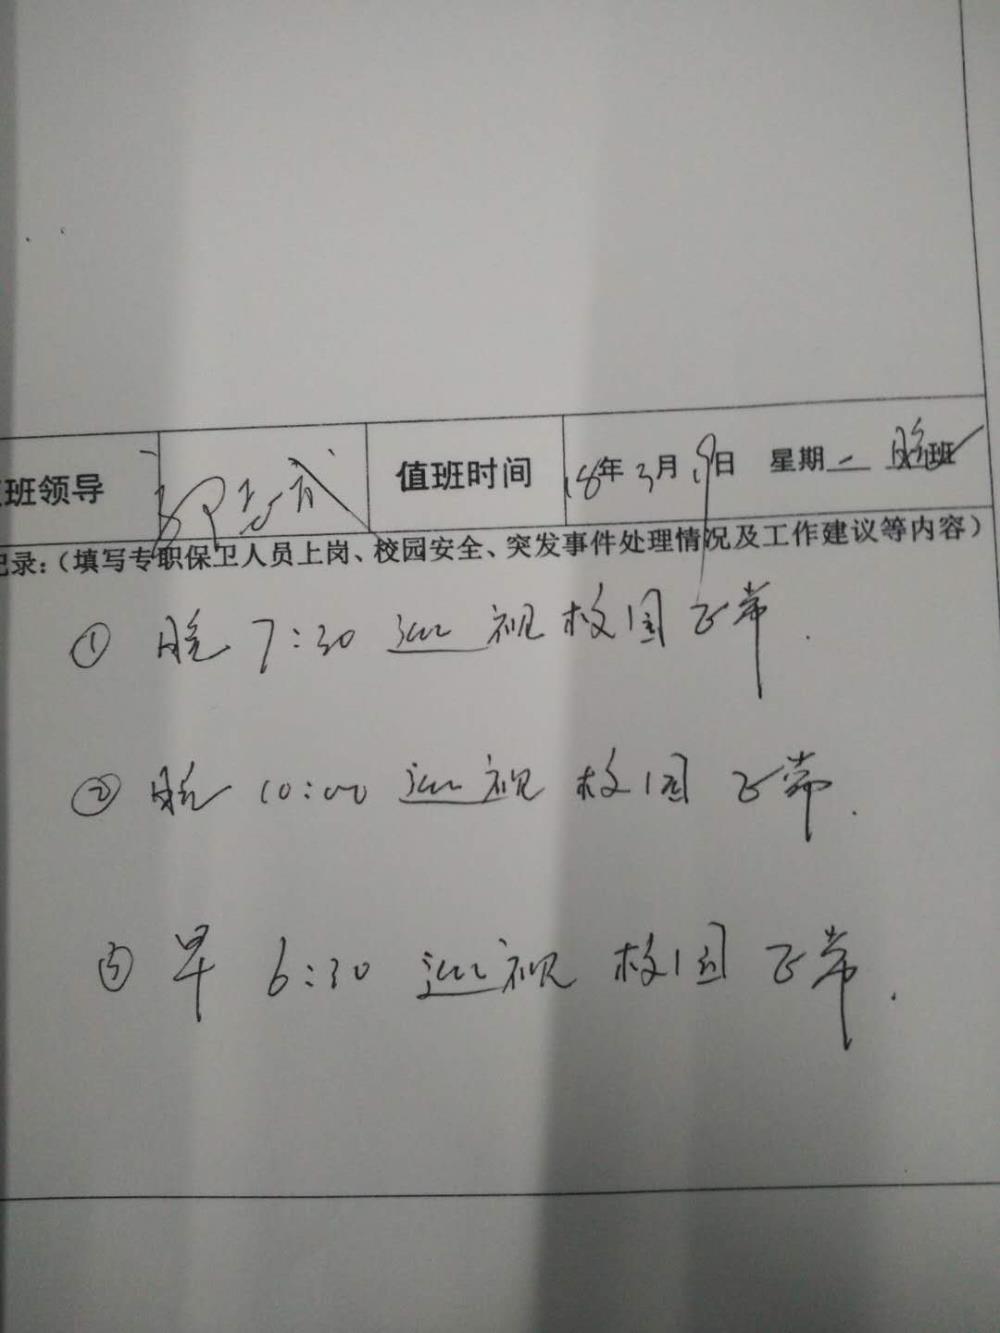 班领导 值班时间 18年3月19日 星期一 晚班
记录：（填写专职保卫人员上岗、校园安全、突发事件处理情况及工作建议等内容）
① 晚 7:30 巡视校园正常.
② 晚 10:00 巡视校园正常.
③ 早 6:30 巡视校园正常.